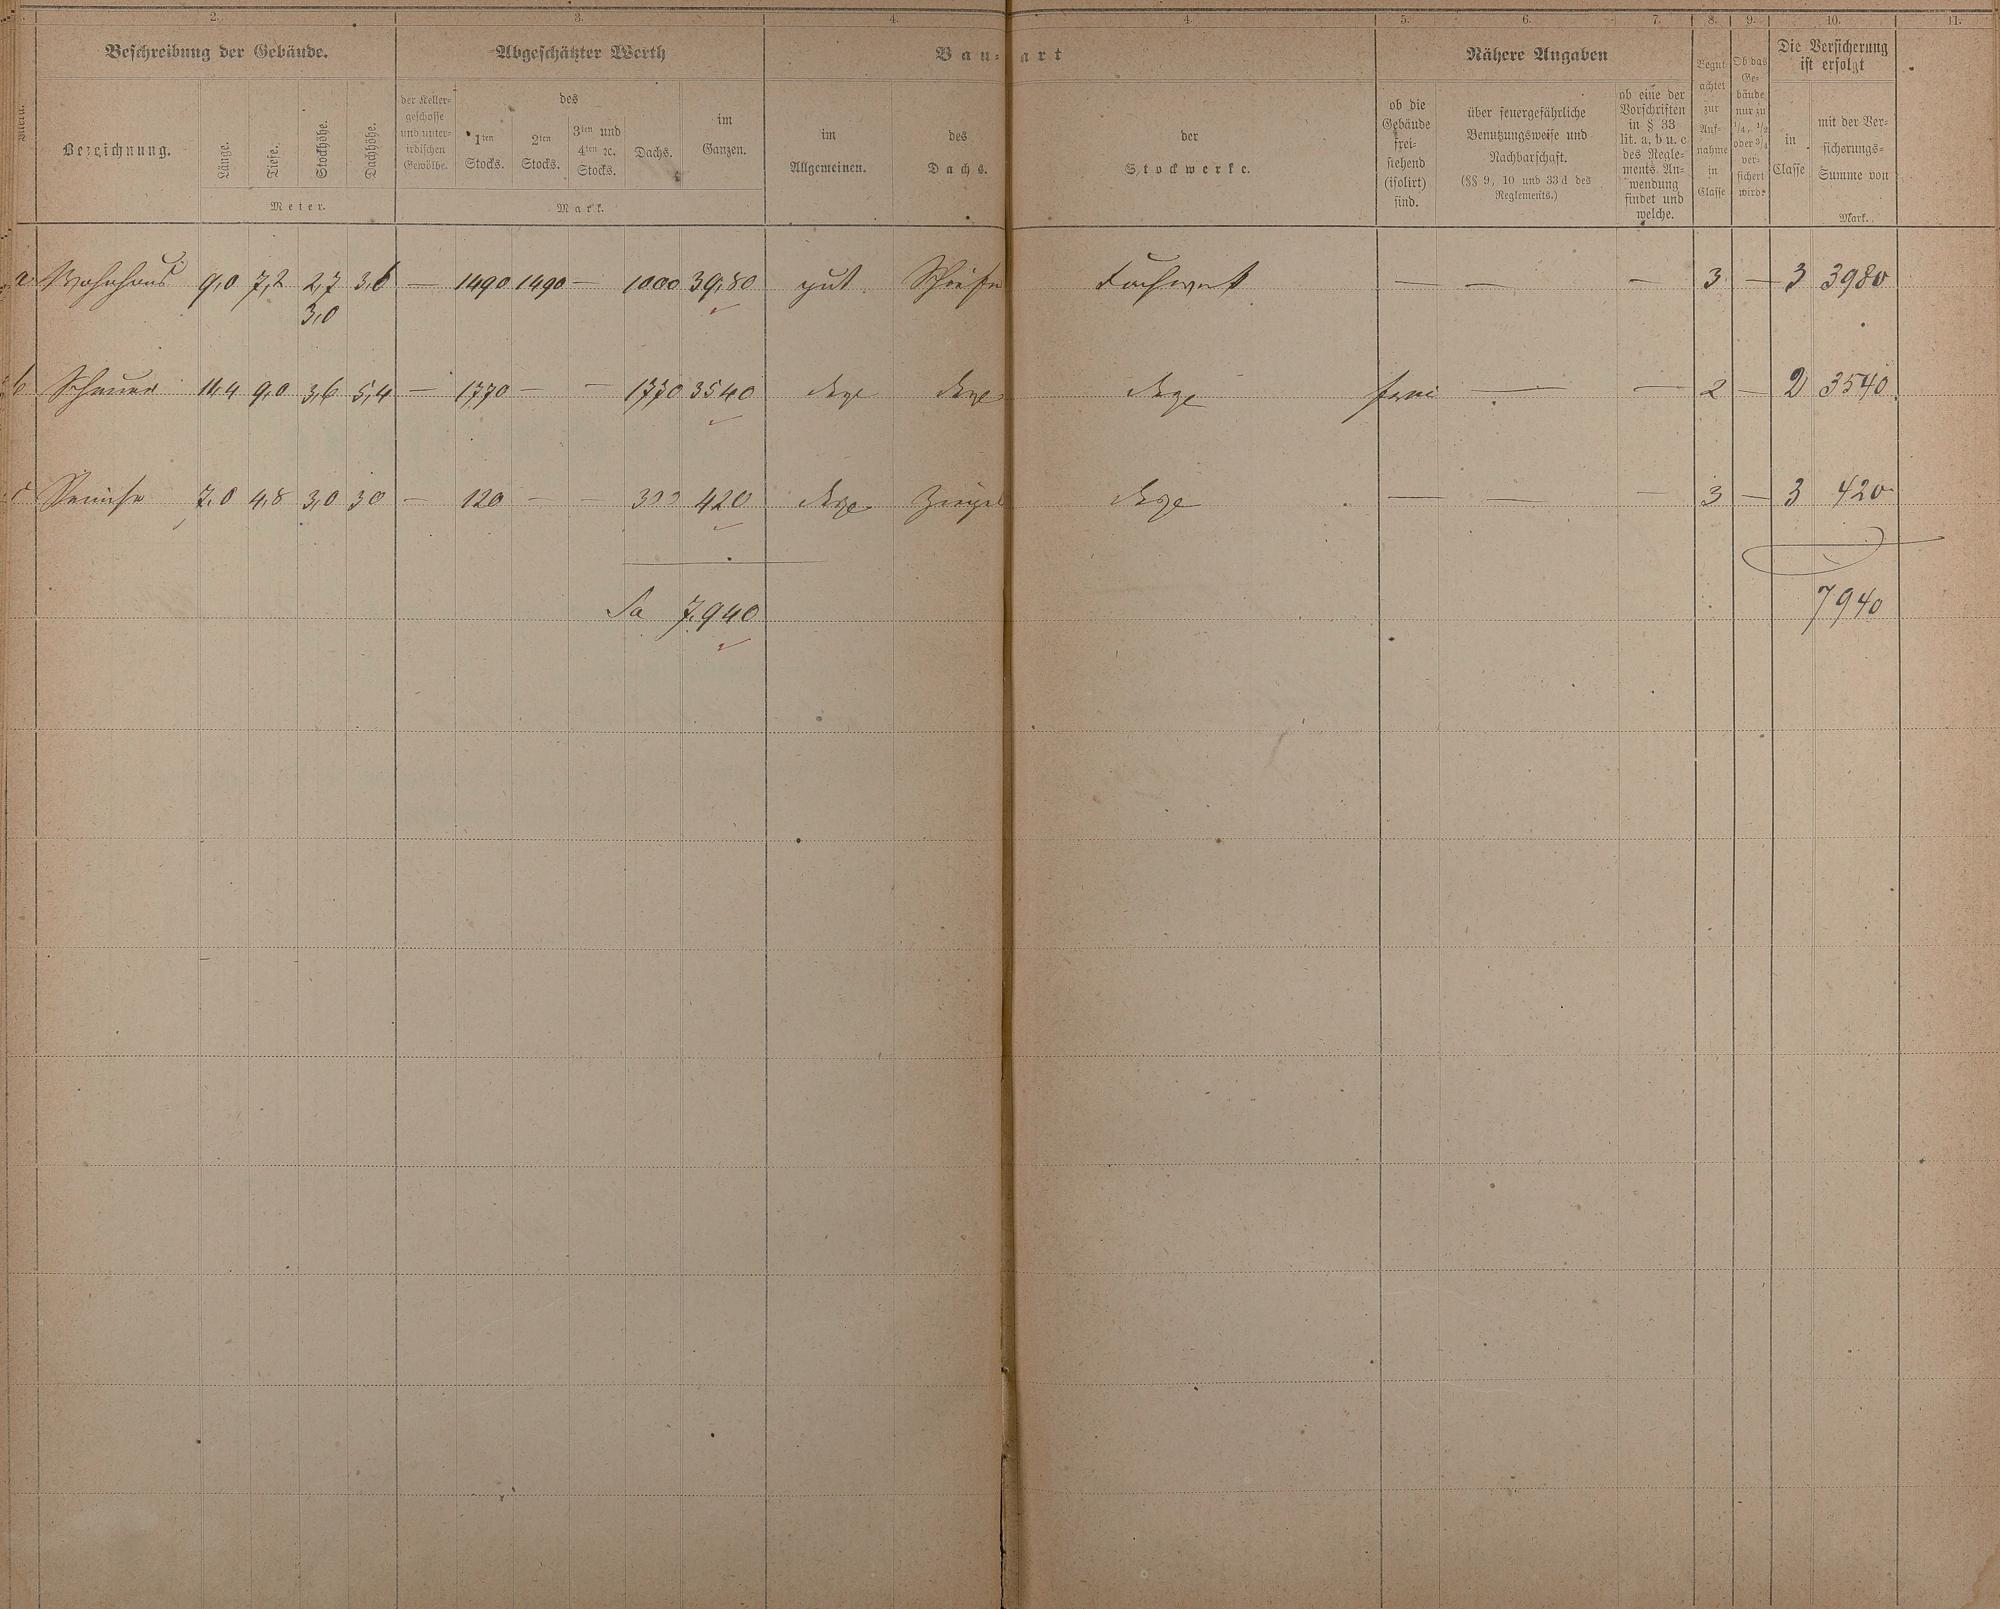 2. 3. 4. 4. 5. 6. 7. 8. 9. 10. 11.
Beschreibung der Gebäude. Abgeschätzter Werth Bau-art Nähere Angaben Die Versicherung ist erfolgt
Bezeichnung. Länge. Tiefe. Stockhöhe. Dachhöhe.
Meter.
der Keller-
geschosse
und unter-
irdischen
Gewölbe.
des
1ten Stocks. 2ten Stocks. 3ten und 4ten ꝛc. Stocks. Dachs.
im Ganzen.
Mark.
im Allgemeinen. des Dachs. der Stockwerke.
ob die
Gebäude
frei-
stehend
(isolirt)
sind.
über feuergefährliche
Benutzungsweise und
Nachbarschaft.
(§§ 9, 10 und 33 d des
Reglements.)
ob eine der
Vorschriften
in § 33
lit. a, b u. c
des Regle-
ments An-
wendung
findet und
welche.
Begut-
achtet
zur
Auf-
nahme
in
Classe
Ob das
Ge-
bäude
nur zu
1/4, 1/2
oder 3/4
ver-
sichert
wird?
in Classe
mit der Ver-
sicherungs-
Summe von
Mark.
a Wohnhaus 9,0 7,2 2,7 3,6 — 1490 1490 — 1000 39,80 gut Schiefer Fachwerk — — — 3 — 3 3980
3,0
b Scheuer 11,4 9,0 3,6 5,4 — 1770 — — 1770 3540 desgl desgl desgl frei — — 2 — 2 3540
c Remise 7,0 4,8 3,0 30 — 120 — — 300 420 desgl Ziegel desgl — — — 3 — 3 420
Sa 7,940 7940